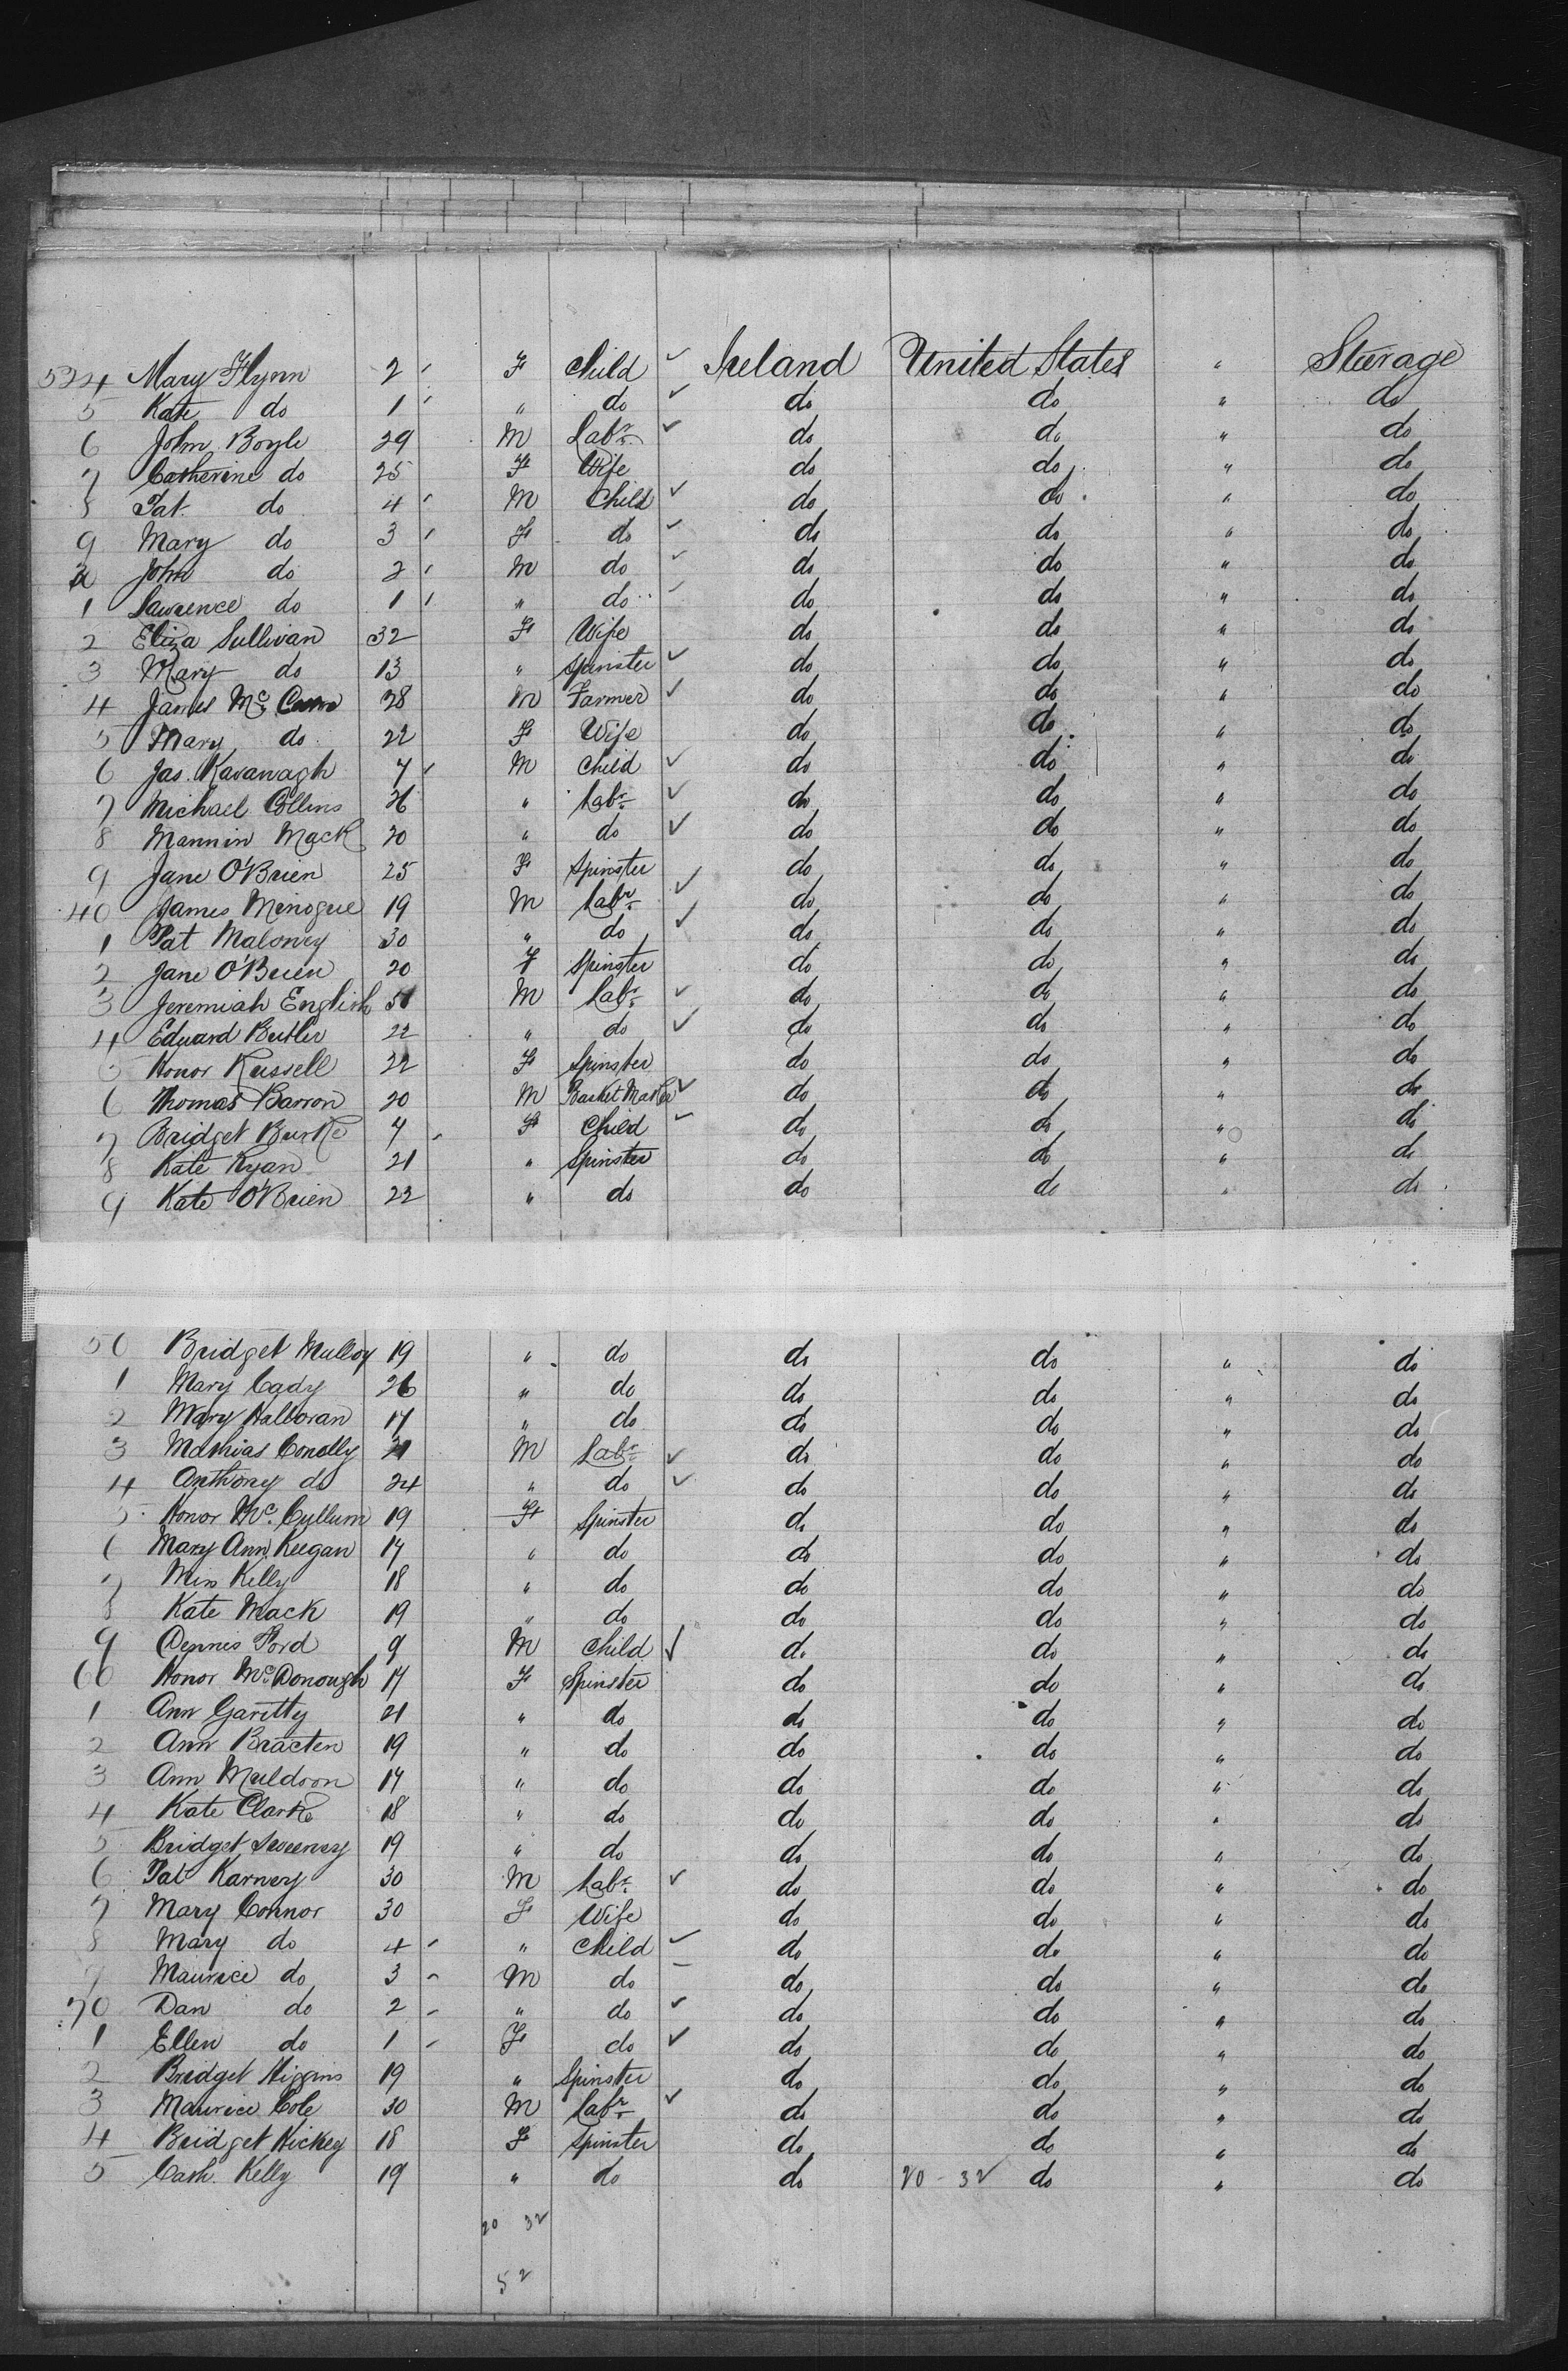 524 Mary Flynn 2 ′ F Child ✓ Ireland United States " Steerage
5 Kate do 1 ′ " do ✓ do do " do
6 John Boyle 29 M Labr ✓ do do " do
7 Catherine do 25 F Wife do do " do
8 Pat do 4 ′ M Child ✓ do do " do
9 Mary do 3 ′ F do ✓ do do " do
John do 2 ′ M do ✓ do do " do
1 Lawrence do 1 ′ " do ✓ do do " do
2 Eliza Sullivan 32 F Wife do do " do
3 Mary do 13 " Spinster ✓ do do " do
4 James Mc 28 M Farmer ✓ do do " do
5 Mary do 22 F Wife do do " do
6 Jas. Kavanagh 7 ′ M Child ✓ do do " do
7 Michael Collins 26 " Labr ✓ do do " do
8 Mannin Mack 20 " do ✓ do do " do
9 Jane O'Brien 25 F Spinster do do " do
40 James Minogue 19 M Labr ✓ do do " do
1 Pat Maloney 30 " do ✓ do do " do
2 Jane O'Brien 20 F Spinster do do " do
3 Jeremiah English M Labr ✓ do do " do
4 Edward Butler 22 " do ✓ do do " do
5 Honor Russell 22 F Spinster do do " do
6 Thomas Barron 20 M Basket Maker ✓ do do " do
7 Bridget Burke 7 - F Child ✓ do do " do
8 Kate Ryan 21 " Spinster do do " do
9 Kate O'Brien 22 " do do do " do
50 Bridget Mulloy 19 " do do do " do
1 Mary Cady 26 " do do do " do
2 Mary Halloran 17 " do do do " do
3 Mathias Conolly M Labr ✓ do do " do
4 Anthony do 24 " do ✓ do do " do
5 Honor Mc. Cullum 19 F Spinster do do " do
6 Mary Ann Keegan 17 " do do do " do
7 Kelly 18 " do do do " do
8 Kate Mack 19 " do do do " do
9 Dennis Ford 9 M Child ✓ do do " do
60 Honor McDonough 17 F Spinster do do " do
1 Ann Garitty 21 " do do do " do
2 Ann Bracten 19 " do do do " do
3 Ann Muldoon 17 " do do do " do
4 Kate Clarke 18 " do do do " do
5 Bridget Sweeney 19 " do do do " do
6 Pat Karney 30 M Labr ✓ do do " do
7 Mary Connor 30 F Wife do do " do
8 Mary do 4 - " Child ✓ do do " do
9 Maurice do 3 - M do - do do " do
70 Dan do 2 - " do ✓ do do " do
1 Ellen do 1 - F do ✓ do do " do
2 Bridget Higgins 19 " Spinster do do " do
3 Maurice Cole 30 M Labr ✓ do do " do
4 Bridget Hickey 18 F Spinster do do " do
5 Cath. Kelly 19 " do do 20 - 32 do " do
20 32
52